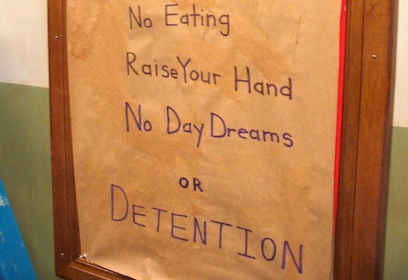 No Eating
Raise Your Hand
No Day Dreams
OR
DETENTION